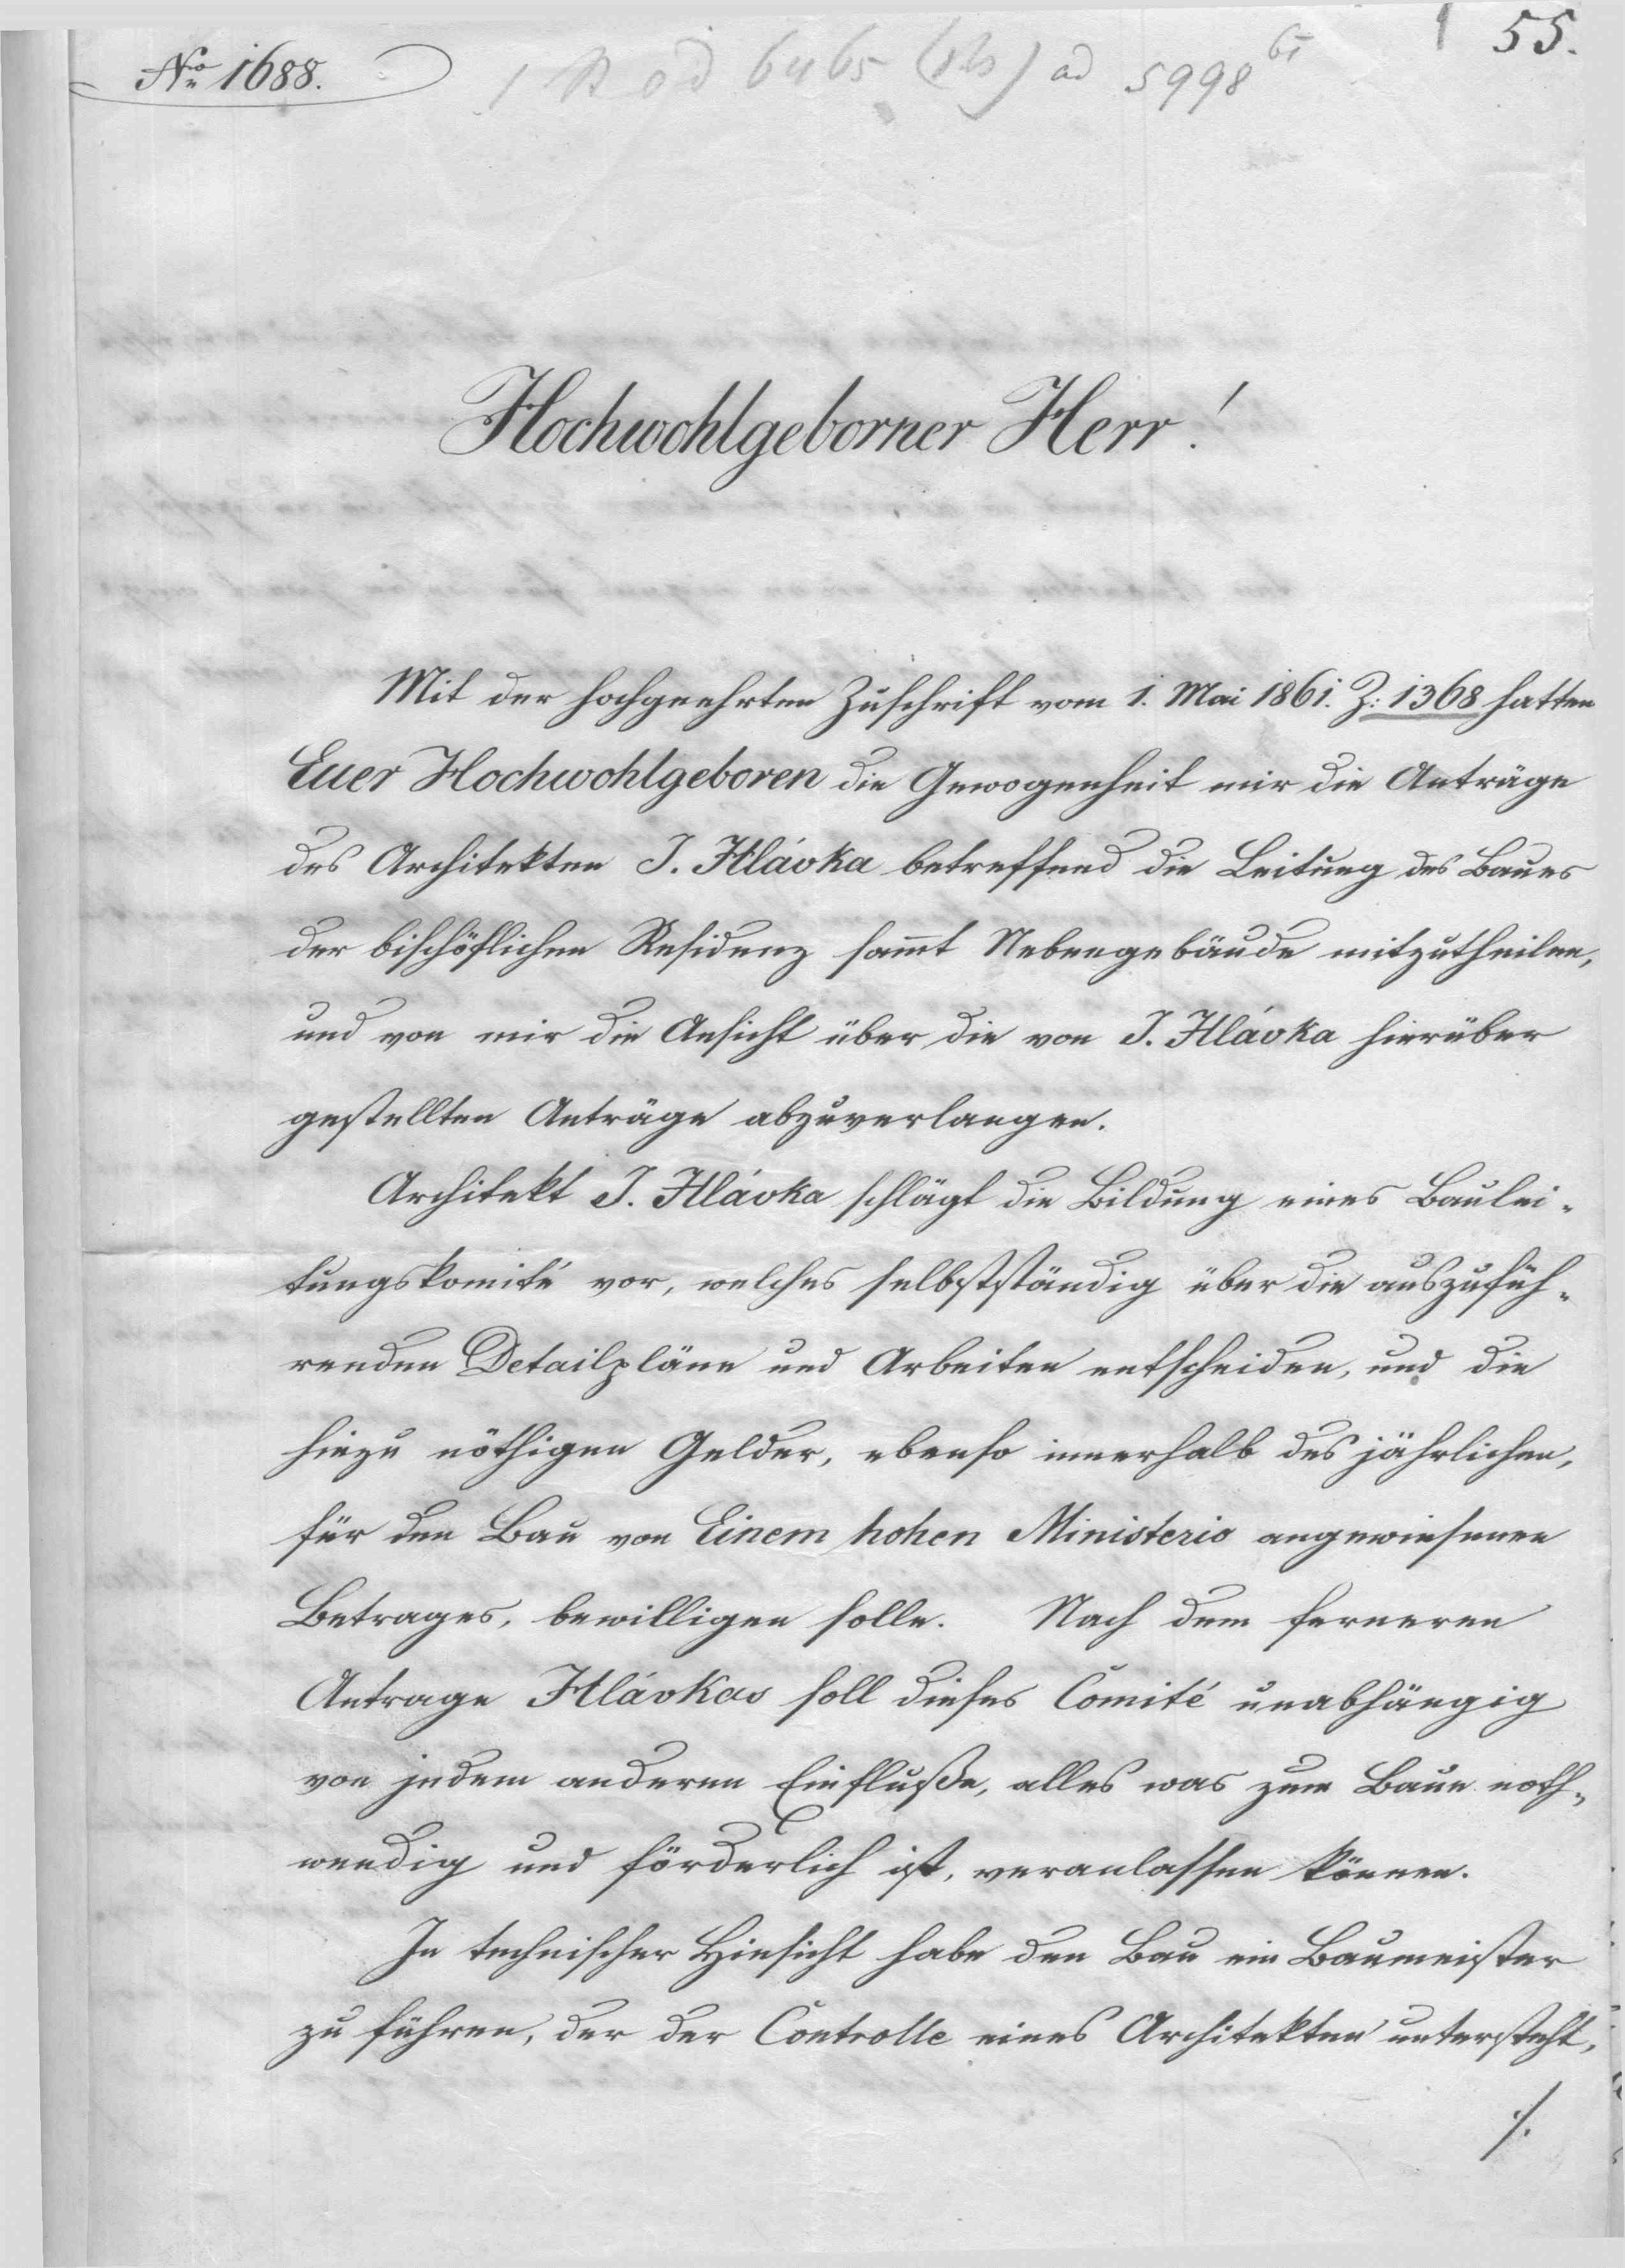 55.
No 1688.
ad 5998
Hochwohlgeborner Herr!
Mit der hochgeehrten Zuschrift vom 1. Mai 1861. Z: 1368 hatten
Euer Hochwohlgeboren die Gewogenheit mir die Anträge
des Architekten J. Hlávka betreffend die Leitung des Baues
der bischöflichen Residenz sam̄t Nebengebäude mitzutheilen,
und von mir die Ansicht über die von J. Hlávka hierüber
gestellten Anträge abzuverlangen.
Architekt J. Hlávka schlägt die Bildung eines Baulei-
tungskomité vor, welches selbstständig über die auszufüh-
renden Detailpläne und Arbeiten entscheiden, und die
hiezu nöthigen Gelder, ebenso innerhalb des jährlichen,
für den Bau von Einem hohen Ministerio angewiesenen
Betrages, bewilligen solle. Nach dem ferneren
Antrage Hlávkas soll dieses Comité unabhängig
von jedem anderen Einfluße, alles was zum Baue noth-
wendig und förderlich ist, veranlassen können.
In technischer Hinsicht habe den Bau ein Baumeister
zu führen, der der Controlle eines Architekten untersteht,
./.